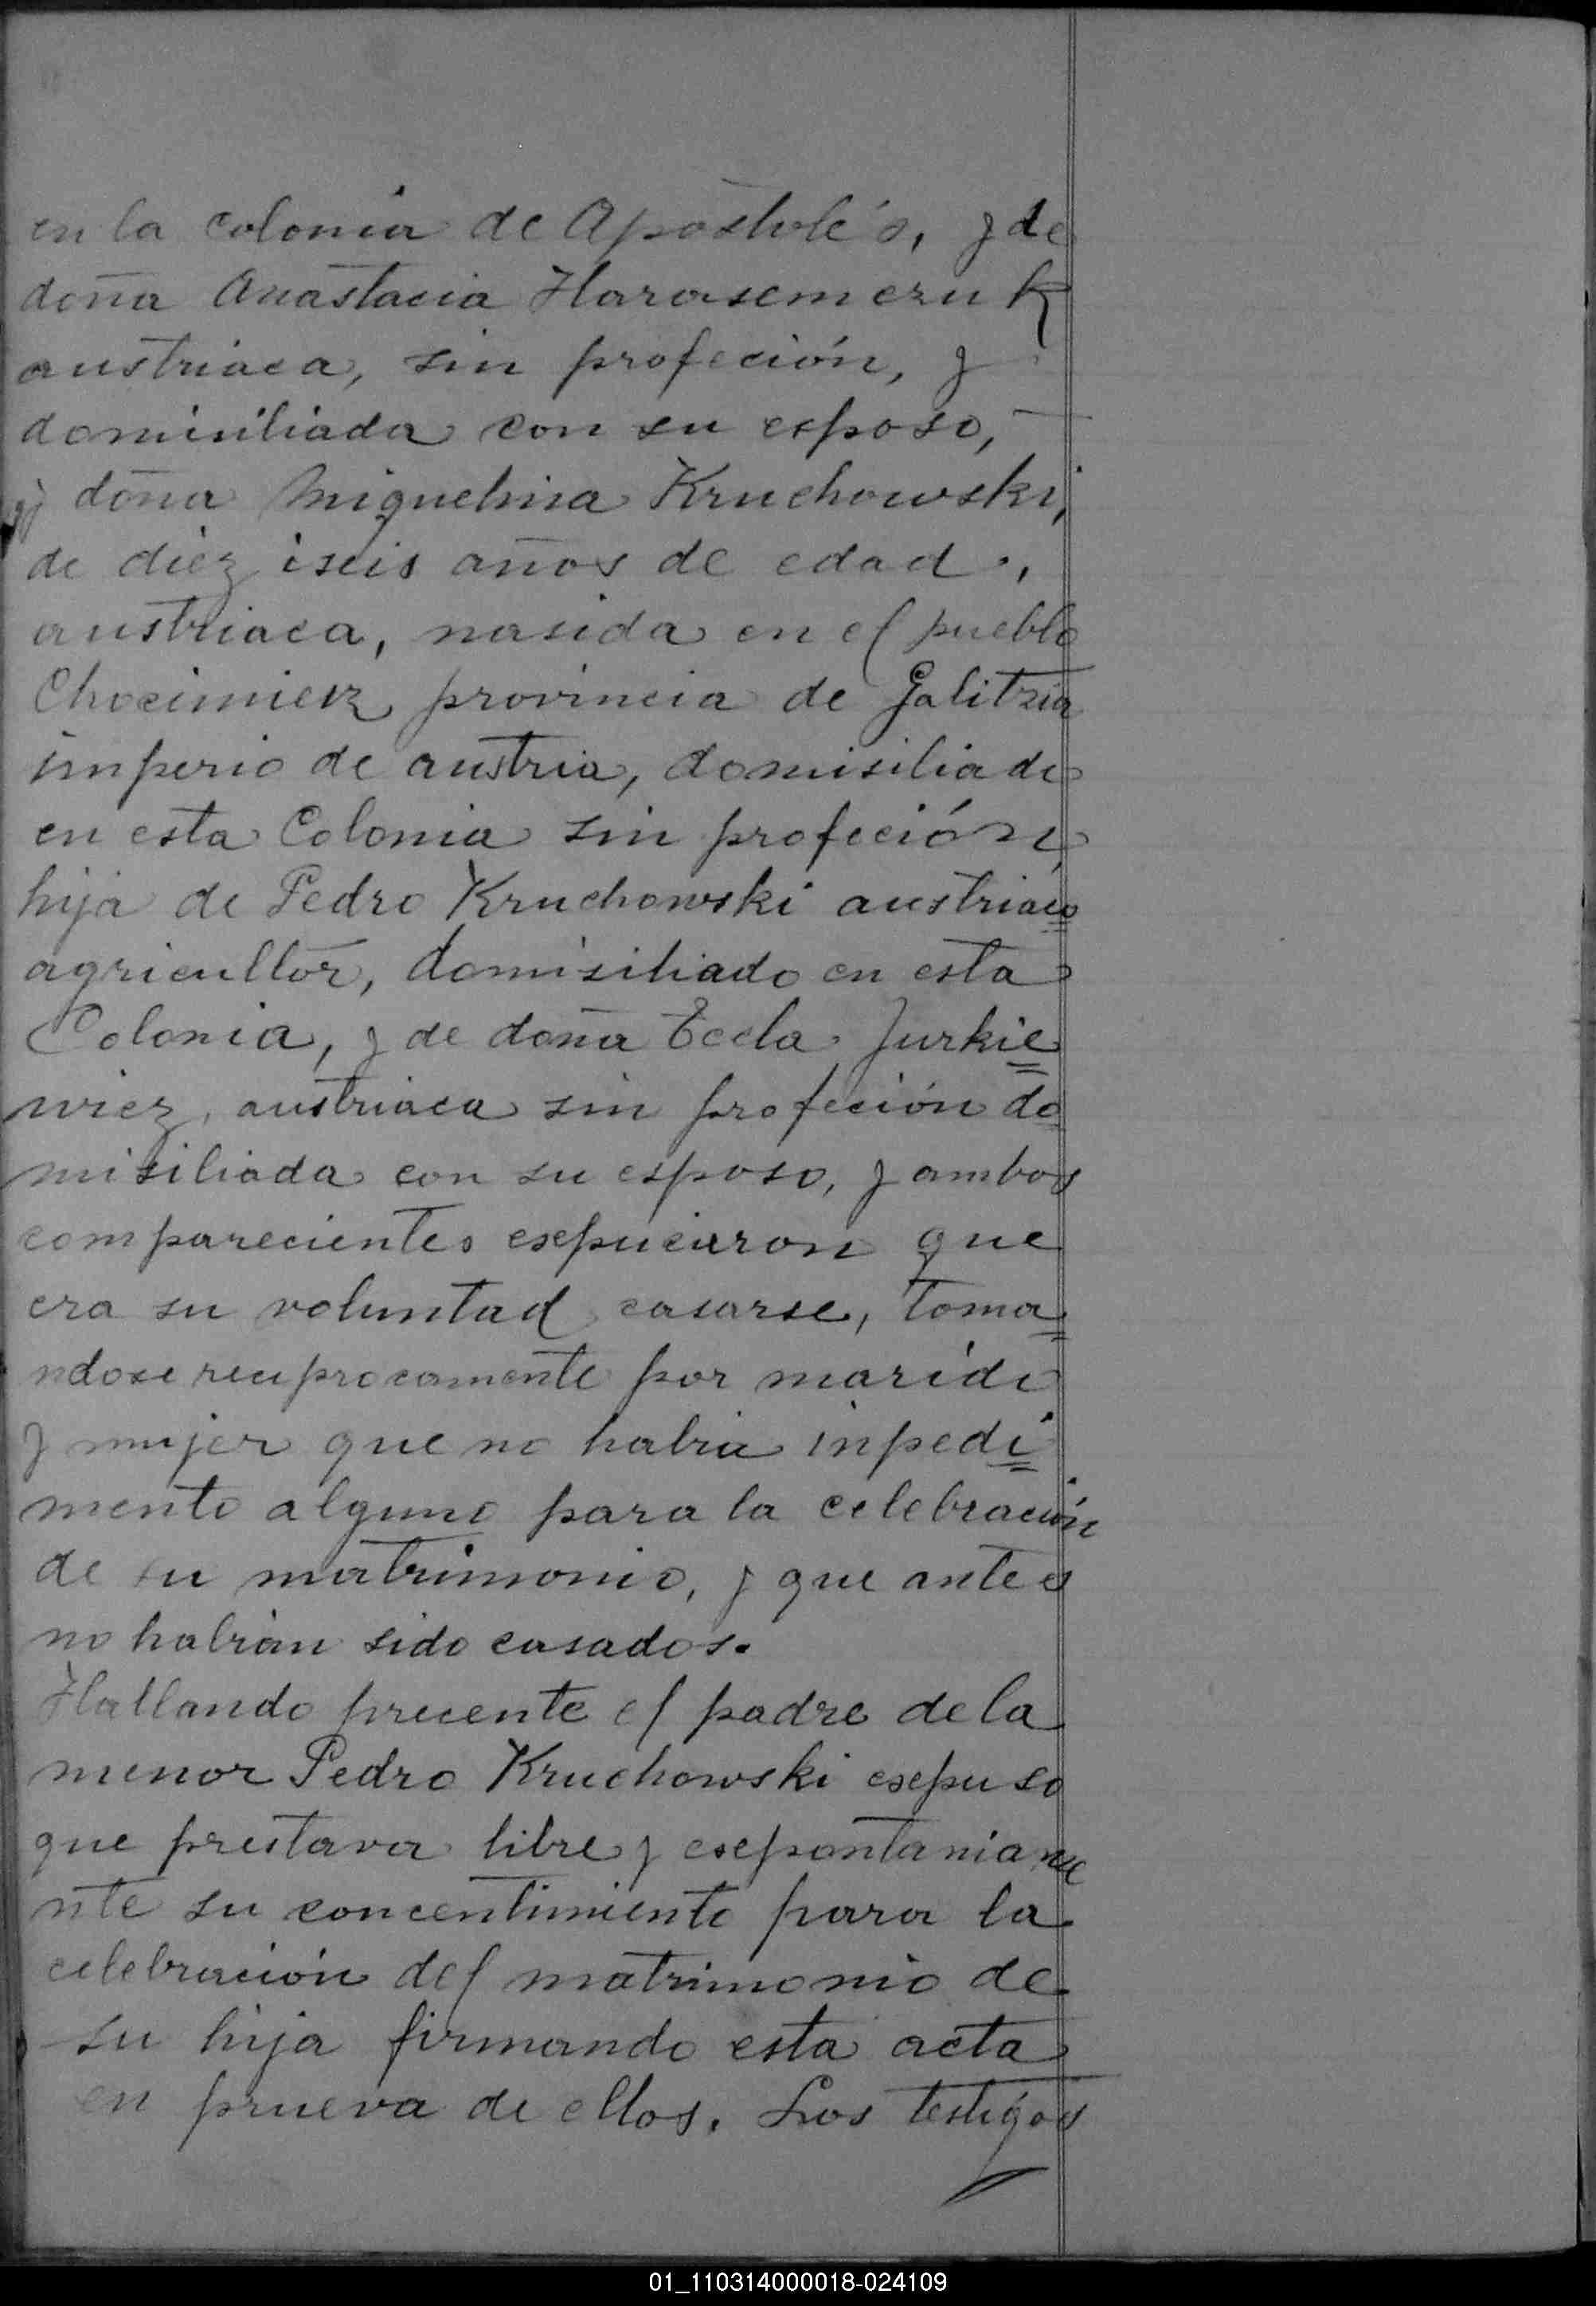 en la colonia de Apostole's, y de
doña Anastacia Harasemczuk
austriaca, sin profeción, y
domisiliada con su esposo,
y doña Miguelina Kruchowski,
de diez iseis años de edad.,
austriaca, nasida en el pueblo
Chocimierz provincia de Galitzia
imperio de austria, domisiliada
en esta Colonia sin profeción,
hija de Pedro Kruchowski austriaco
agricultor, domisiliado en esta
Colonia, y de doña Tecla Jurkie
wiez, austriaca sin profeción do
misiliada con su esposo, y ambos
comparecientes esepucieron que
era su voluntad casarse, toma
ndose reciprocamente por marido
y mujer que no habia inpedi
mento alguno para la celebración
de su matrimonio, y que antes
no habian sido casados.
Hallando precente el padre de la
menor Pedro Kruchowski esepuso
que prestava libre y esepontaniame
nte su concentimiento para la
celebración del matrimonio de
su hija firmando esta acta
en prueva de ellos. Los testigos
01_110314000018-024109